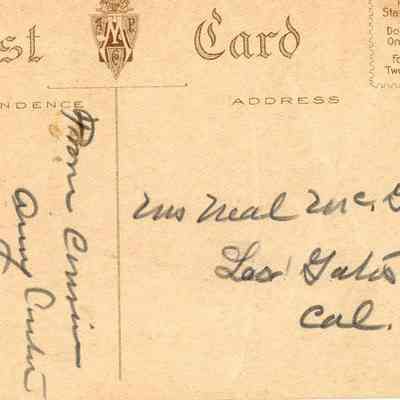 st Card
NDENCE
ADDRESS
Sta
De
On
Fo
Two
From Cousin
Mrs Neal Mc. G
Los Gatos
Cal.